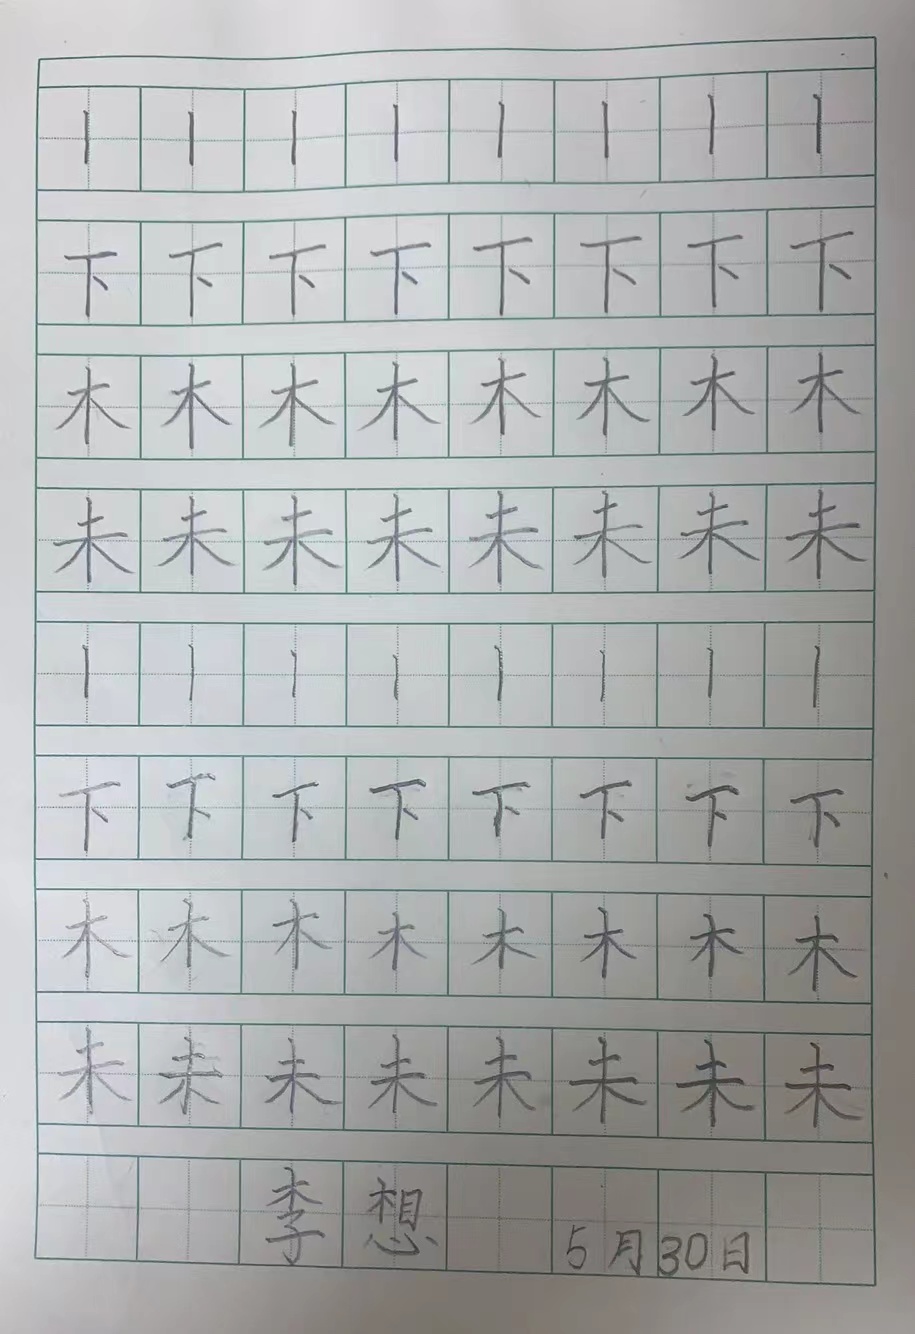 丨丨丨丨丨丨丨丨
下下下下下下下下
木木木木木木木木
未未未未未未未未
丨丨丨丨丨丨丨丨
下下下下下下下下
木木木木木木木木
未未未未未未未未
李想 5月30日